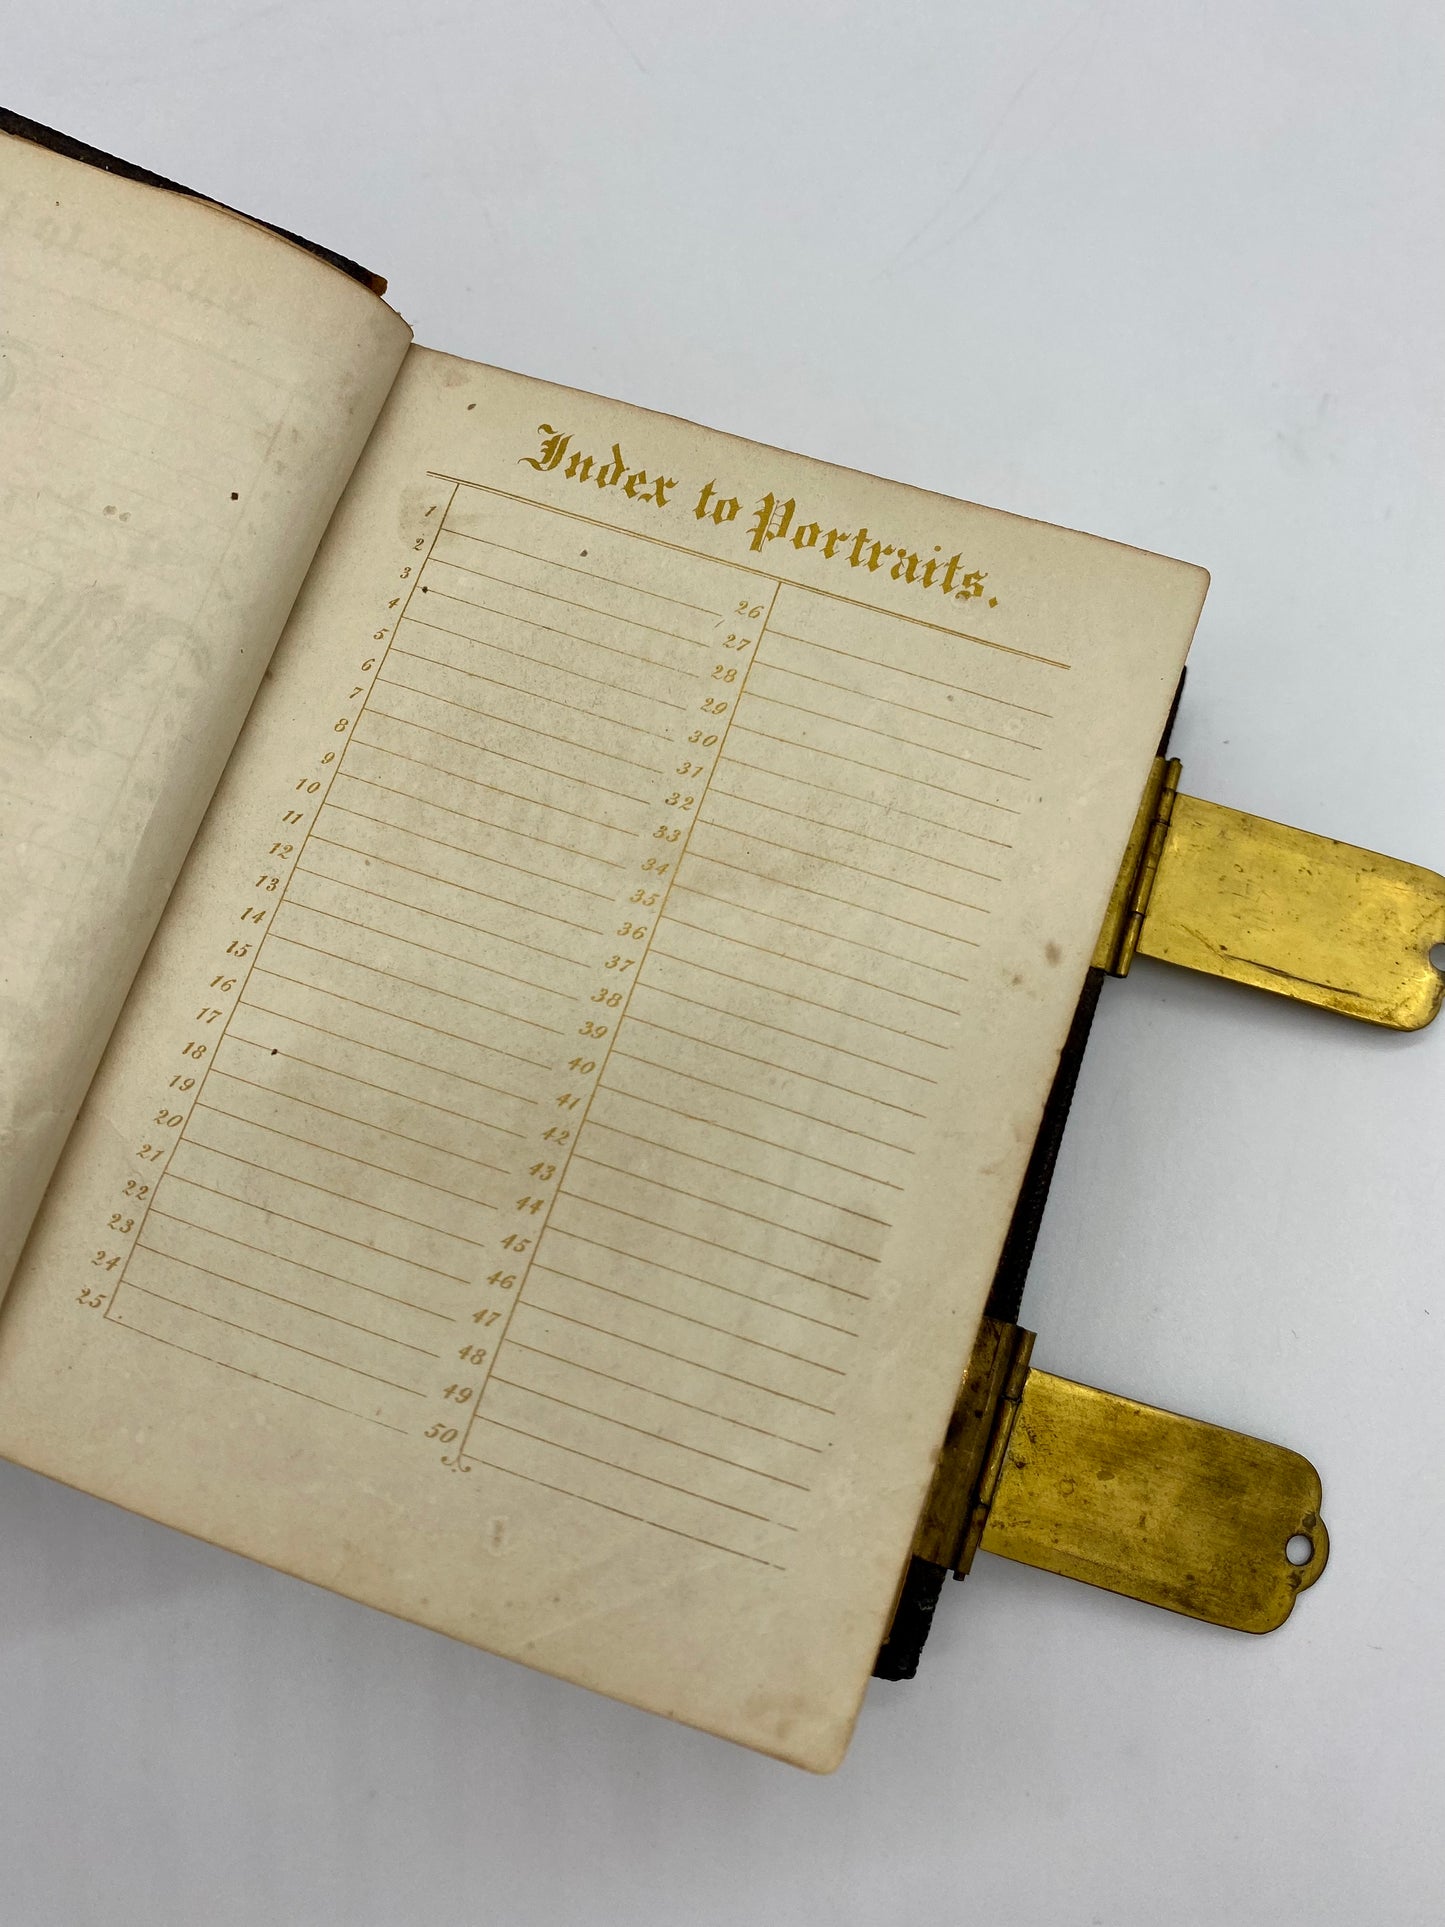 Index to Portraits.
1
2
3
4
5
6
7
8
9
10
11
12
13
14
15
16
17
18
19
20
21
22
23
24
25
26
27
28
29
30
31
32
33
34
35
36
37
38
39
40
41
42
43
44
45
46
47
48
49
50